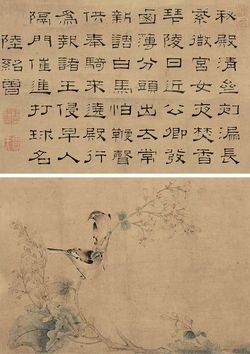 秘殿清齋刻漏長
紫微宮女夜焚香
拜陵日近公卿發
鹵簿分頭出太常
新調白馬怕鞭聲
供奉騎來遶殿行
為報諸王侵早入
隔門催進打球名
陸紹曾